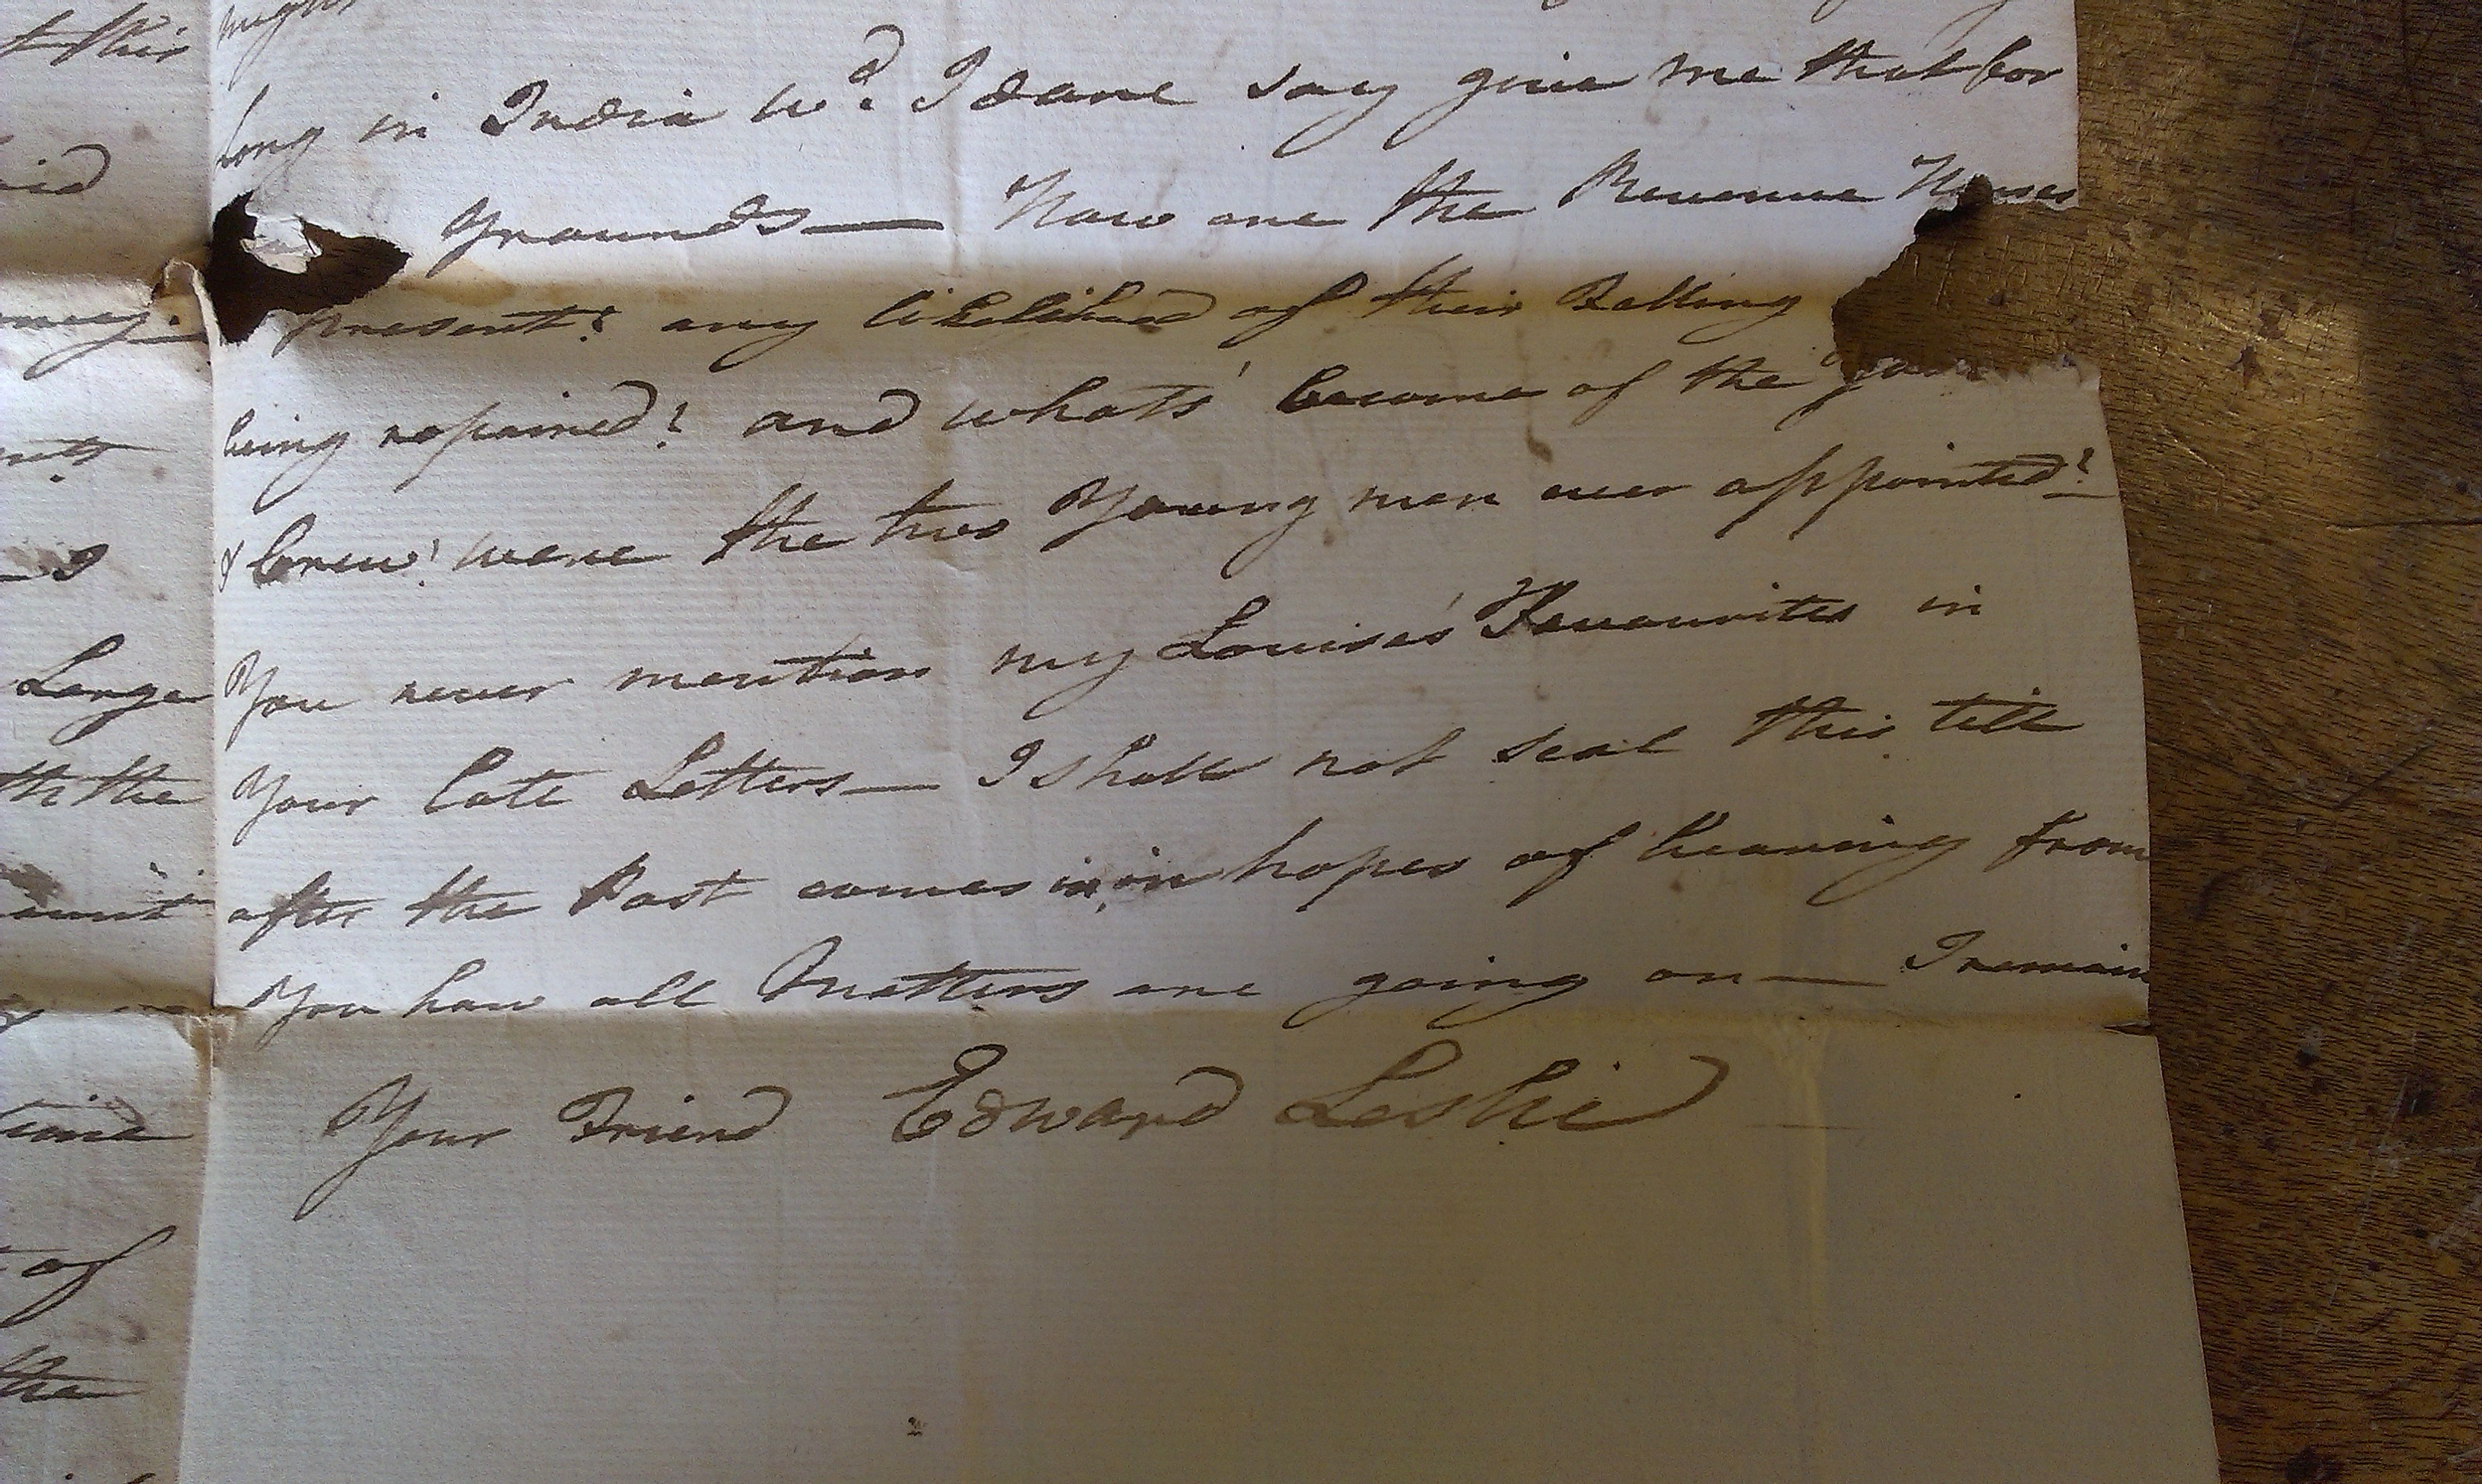 t this
aid
Large
th the
of
the
might
long in India wd. I dare say give me that for
grounds — How are the Revenue Houses
present? any likelihood of their Falling
being repaired? and whats' become of the
& Crew! were the two Young men ever appointed?
You never mention my Louisas' Favourites in
Your late Letters — I shall not seal this till
after the Post comes in, in hopes of hearing from
You how all Matters are going on — I remain
Your Friend Edward Leslie